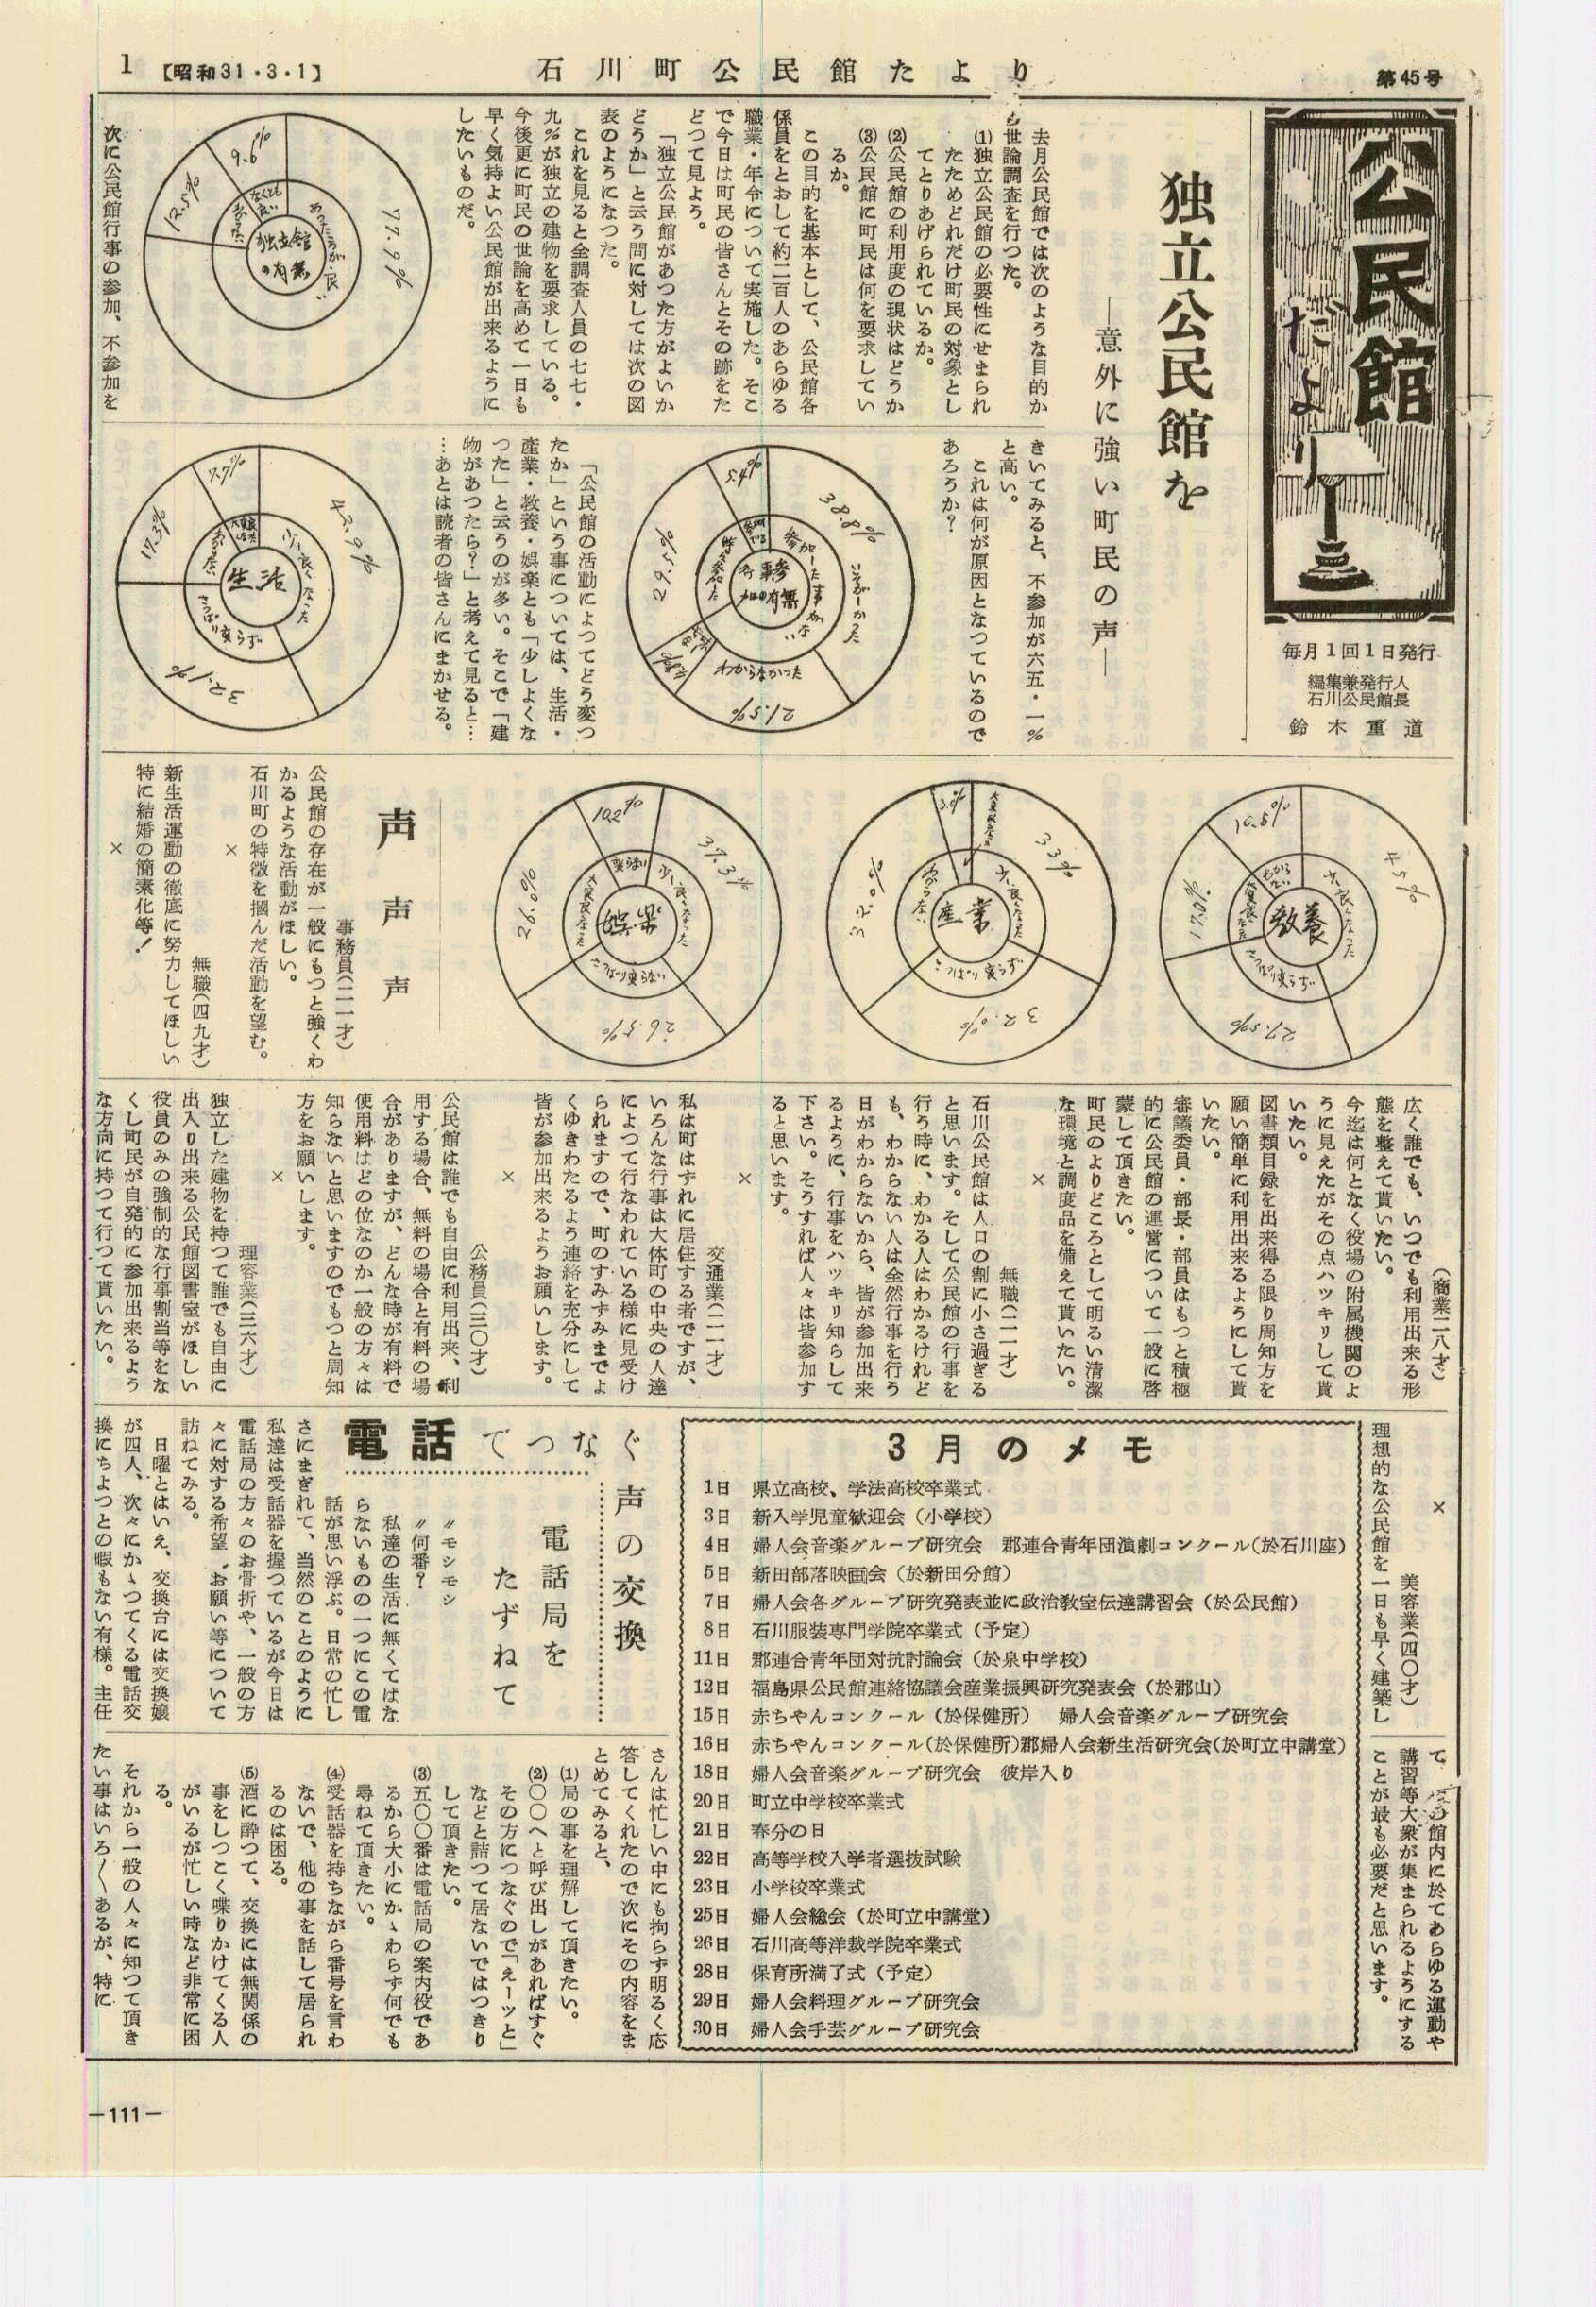 1
【昭和31・3・1】
石川町公民館たより
第45号
公民館
だより
毎月1回1日発行
編集兼発行人
石川公民館長
鈴木重道
独立公民館を
―意外に強い町民の声―
去月公民館では次のような目的か
ら世論調査を行つた。
(1)独立公民館の必要性にせまられ
たためどれだけ町民の対象とし
てとりあげられているか。
(2)公民館の利用度の現状はどうか
(3)公民館に町民は何を要求してい
るか。
この目的を基本として、公民館各
係員をとおして約二百人のあらゆる
職業・年令について実施した。そこ
で今日は町民の皆さんとその跡をた
どつて見よう。
「独立公民館があつた方がよいか
どうか」と云う問に対しては次の図
表のようになつた。
これを見ると全調査人員の七七・
九%が独立の建物を要求している。
今後更に町民の世論を高めて一日も
早く気持よい公民館が出来るように
したいものだ。
独立館
の有無
77.9%
12.5%
なくとも
良い
9.6%
次に公民館行事の参加、不参加を
きいてみると、不参加が六五・一%
と高い。
これは何が原因となつているので
あろうか?
参加した事がない
38.8%
いそがしかつた
わからなかつた
21.5%
29.5%
5.4%
「公民館の活動によつてどう変つ
たか」という事については、生活・
産業・教養・娯楽とも「少しよくな
つた」と云うのが多い。そこで「建
物があつたら?」と考えて見ると…
…あとは読者の皆さんにまかせる。
生活
少し良くなつた
42.9%
さつぱり変らず
32.1%
17.3%
7.7%
教養
少し良くなつた
45%
さつぱり変らず
27.5%
17.0%
10.5%
産業
少し良くなつた
33%
さつぱり変らず
32.0%
32.0%
3.0%
娯楽
少し良くなつた
37.3%
さつぱり変らない
26.5%
26.0%
10.2%
声声声
事務員(二一才)
公民館の存在が一般にもつと強くわ
かるような活動がほしい。
石川町の特徴を掴んだ活動を望む。
×
無職(四九才)
新生活運動の徹底に努力してほしい
特に結婚の簡素化等!
×
(商業二八才)
広く誰でも、いつでも利用出来る形
態を整えて貰いたい。
今迄は何となく役場の附属機関のよ
うに見えたがその点ハッキリして貰
いたい。
図書類目録を出来得る限り周知方を
願い簡単に利用出来るようにして貰
いたい。
審議委員・部長・部員はもつと積極
的に公民館の運営について一般に啓
蒙して頂きたい。
町民のよりどころとして明るい清潔
な環境と調度品を備えて貰いたい。
×
無職(二一才)
石川公民館は人口の割に小さ過ぎる
と思います。そして公民館の行事を
行う時に、わかる人はわかるけれど
も、わからない人は全然行事を行う
日がわからないから、皆が参加出来
るように、行事をハッキリ知らして
下さい。そうすれば人々は皆参加す
ると思います。
×
交通業(二一才)
私は町はずれに居住する者ですが、
いろんな行事は大体町の中央の人達
によつて行なわれている様に見受け
られますので、町のすみずみまでよ
くゆきわたるよう連絡を充分にして
皆が参加出来るようお願いします。
×
公務員(三〇才)
公民館は誰でも自由に利用出来、利
用する場合、無料の場合と有料の場
合がありますが、どんな時が有料で
使用料はどの位なのか一般の方々は
知らないと思いますのでもつと周知
方をお願いします。
×
理容業(三六才)
独立した建物を持つて誰でも自由に
出入り出来る公民館図書室がほしい
役員のみの強制的な行事割当等をな
くし町民が自発的に参加出来るよう
な方向に持つて行つて貰いたい。
×
美容業(四〇才)
理想的な公民館を一日も早く建築し
て、館内に於てあらゆる運動や
講習等大衆が集まられるようにする
ことが最も必要だと思います。
3月のメモ
1日 県立高校、学法高校卒業式
3日 新入学児童歓迎会(小学校)
4日 婦人会音楽グループ研究会 郡連合青年団演劇コンクール(於石川座)
5日 新田部落映画会(於新田分館)
7日 婦人会各グループ研究発表並に政治教室伝達講習会(於公民館)
8日 石川服装専門学院卒業式(予定)
11日 郡連合青年団対抗討論会(於泉中学校)
12日 福島県公民館連絡協議会産業振興研究発表会(於郡山)
15日 赤ちやんコンクール(於保健所) 婦人会音楽グループ研究会
16日 赤ちやんコンクール(於保健所)郡婦人会新生活研究会(於町立中講堂)
18日 婦人会音楽グループ研究会 彼岸入り
20日 町立中学校卒業式
21日 春分の日
22日 高等学校入学者選抜試験
23日 小学校卒業式
25日 婦人会総会(於町立中講堂)
26日 石川高等洋裁学院卒業式
28日 保育所満了式(予定)
29日 婦人会料理グループ研究会
30日 婦人会手芸グループ研究会
電話でつなぐ
声の交換
電話局を
たずねて
〃モシモシ
〃何番?
私達の生活に無くてはな
らないものの一つにこの電
話が思い浮ぶ。日常の忙し
さにまぎれて、当然のことのように
私達は受話器を握つているが今日は
電話局の方々のお骨折や、一般の方
々に対する希望、お願い等について
訪ねてみる。
日曜とはいえ、交換台には交換嬢
が四人、次々にかゝつてくる電話交
換にちよつとの暇もない有様。主任
さんは忙しい中にも拘らず明るく応
答してくれたので次にその内容をま
とめてみると、
(1)局の事を理解して頂きたい。
(2)〇〇へと呼び出しがあればすぐ
その方につなぐので「えーッと」
などと詰つて居ないではつきり
して頂きたい。
(3)五〇〇番は電話局の案内役であ
るから大小にかゝわらず何でも
尋ねて頂きたい。
(4)受話器を持ちながら番号を言わ
ないで、他の事を話して居られ
るのは困る。
(5)酒に酔つて、交換には無関係の
事をしつこく喋りかけてくる人
がいるが忙しい時など非常に困
る。
それから一般の人々に知つて頂き
たい事はいろ〳〵あるが、特に
—111—